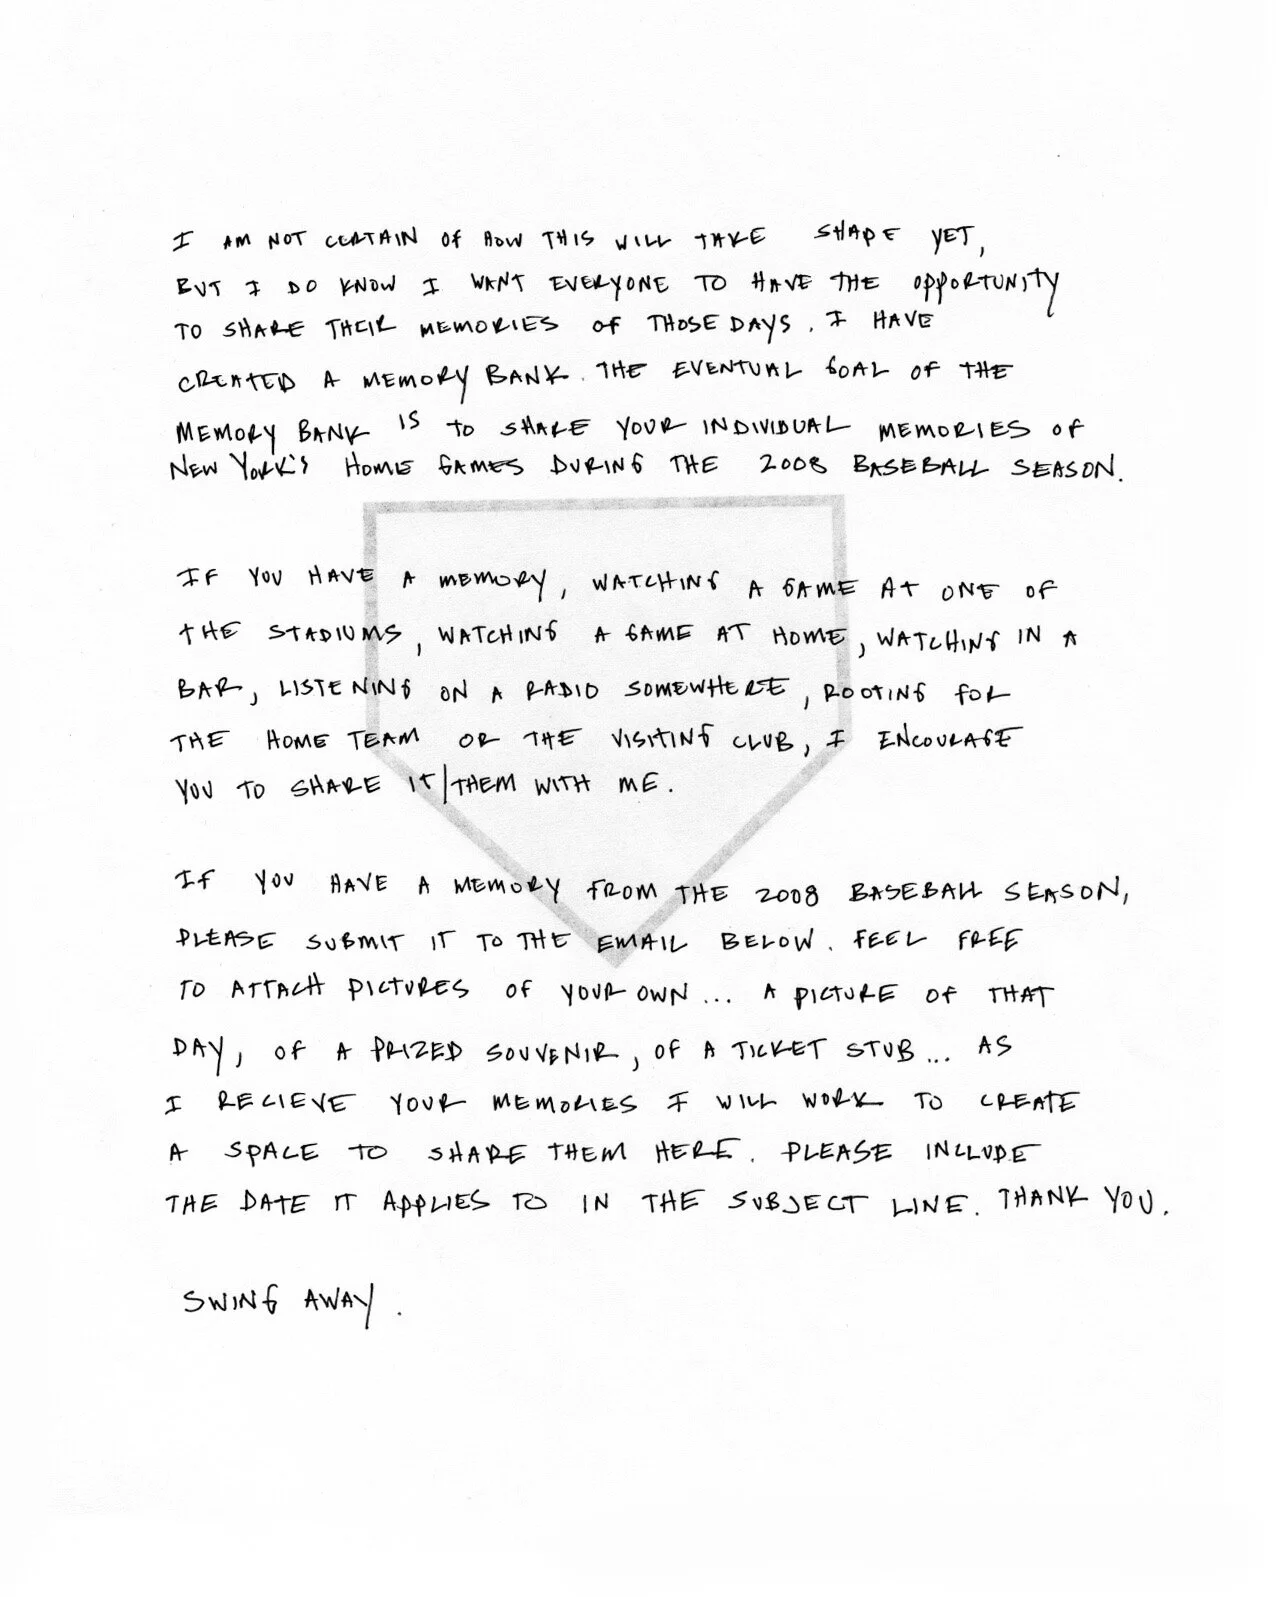 I AM NOT CERTAIN OF HOW THIS WILL TAKE SHAPE YET,
BUT I DO KNOW I WANT EVERYONE TO HAVE THE OPPORTUNITY
TO SHARE THEIR MEMORIES OF THOSE DAYS. I HAVE
CREATED A MEMORY BANK. THE EVENTUAL GOAL OF THE
MEMORY BANK IS TO SHARE YOUR INDIVIDUAL MEMORIES OF
NEW YORK'S HOME GAMES DURING THE 2008 BASEBALL SEASON.
IF YOU HAVE A MEMORY, WATCHING A GAME AT ONE OF
THE STADIUMS, WATCHING A GAME AT HOME, WATCHING IN A
BAR, LISTENING ON A RADIO SOMEWHERE, ROOTING FOR
THE HOME TEAM OR THE VISITING CLUB, I ENCOURAGE
YOU TO SHARE IT/THEM WITH ME.
IF YOU HAVE A MEMORY FROM THE 2008 BASEBALL SEASON,
PLEASE SUBMIT IT TO THE EMAIL BELOW. FEEL FREE
TO ATTACH PICTURES OF YOUR OWN... A PICTURE OF THAT
DAY, OF A PRIZED SOUVENIR, OF A TICKET STUB... AS
I RECIEVE YOUR MEMORIES I WILL WORK TO CREATE
A SPACE TO SHARE THEM HERE. PLEASE INCLUDE
THE DATE IT APPLIES TO IN THE SUBJECT LINE. THANK YOU.
SWING AWAY.